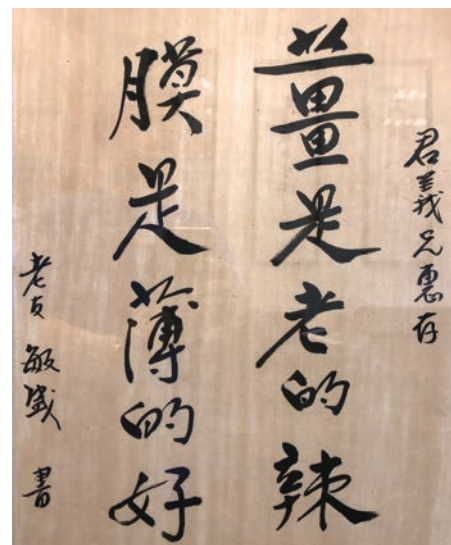 君義兄惠存
薑是老的辣
膜是薄的好
老友敏盛書